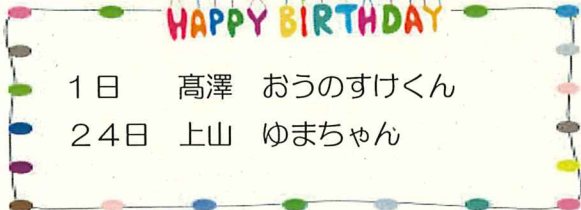 HAPPY BIRTHDAY
1日　髙澤　おうのすけくん
24日　上山　ゆまちゃん